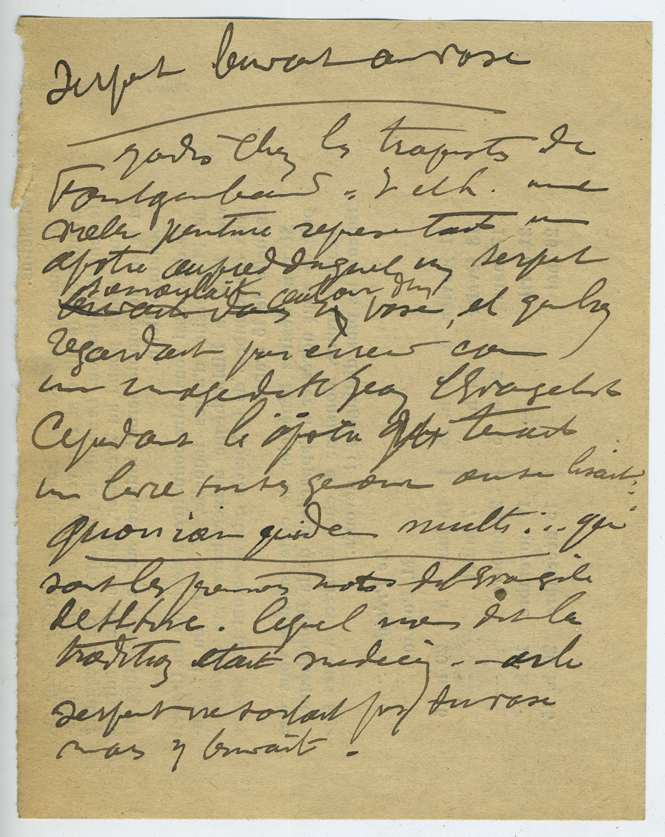 Serpent buvant au vase
jadis chez les trapistes de
Fontgombaud
vieille peinture représentant un
apotre au pied duquel un serpent
s'enroulait autour d'un vase, et qu'on
regardait par erreur com
un image de St Jean l'Evangeliste
Cependant l'apotre tenait
un livre sur ses genoux on se lisait:
quoniam quidem multi... qui
sont les premiers mots de l'Evangile
de St Luc. lequel nous dit la
tradition etait medecin. - or le
serpent ne sortait pas du vase
mais y buvait.